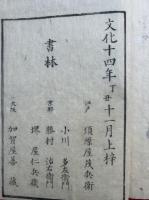 文化十四年丁丑十一月上梓
江戸 須原屋茂兵衛
書林
京都 小川多左衛門
勝村治右衛門
堺屋仁兵衛
大阪 加賀屋善藏